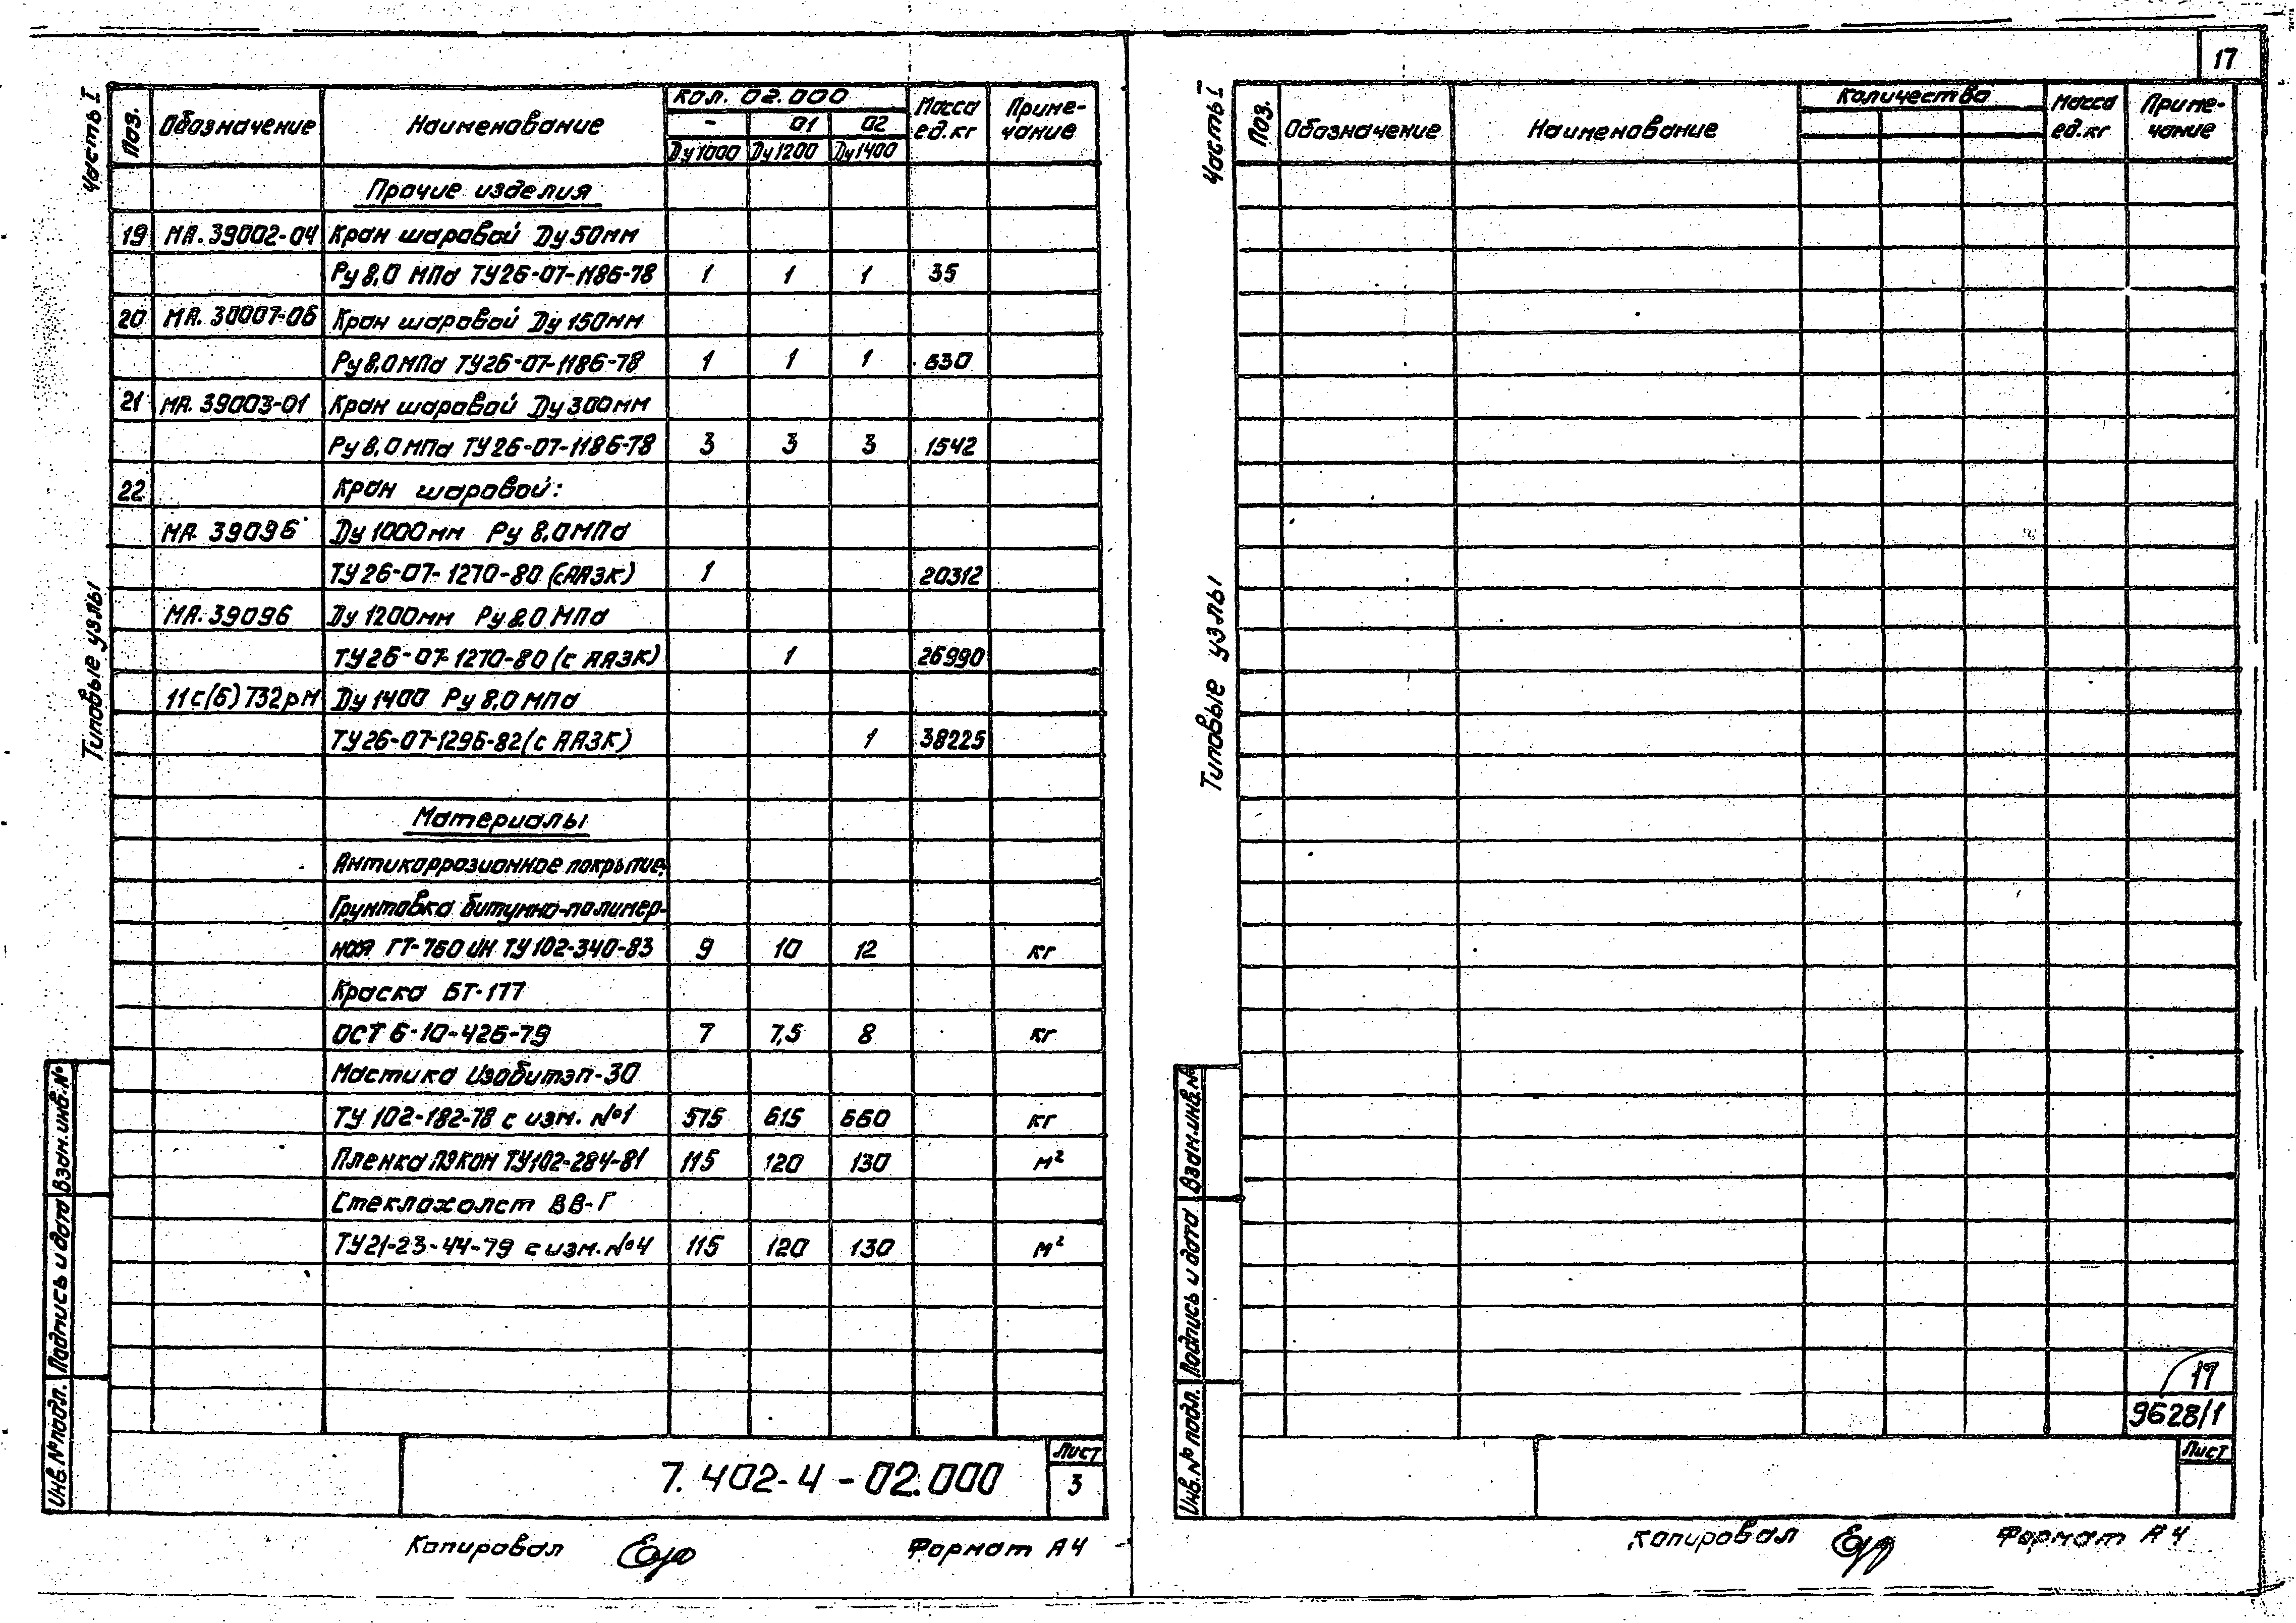 17
Часть I
Типовые узлы
Поз. Обозначение Наименование Кол. 02.000 Масса ед.кг Приме-чание
- 01 02
Ду1000 Ду1200 Ду1400
Прочие изделия
19 МА.39002-04 Кран шаровой Ду 50мм
Ру 8,0 МПа ТУ26-07-1186-78 1 1 1 35
20 МА.30007-06 Кран шаровой Ду 150мм
Ру 8,0 МПа ТУ26-07-1186-78 1 1 1 330
21 МА.39003-01 Кран шаровой Ду 300мм
Ру 8,0 МПа ТУ26-07-1186-78 3 3 3 1542
22 Кран шаровой:
МА.39096 Ду 1000мм Ру 8,0МПа
ТУ26-07-1270-80 (с ААЗК) 1 20312
МА.39096 Ду 1200мм Ру 8,0 МПа
ТУ26-07-1270-80 (с ААЗК) 1 26990
11с(б)732рм Ду 1400 Ру 8,0 МПа
ТУ26-07-1296-82 (с ААЗК) 1 38225
Материалы
Антикоррозионное покрытие:
Грунтовка битумно-полимер-
ная ГТ-760 ИН ТУ102-340-83 9 10 12 кг
Краска БТ-177
ОСТ 6-10-426-79 7 7,5 8 кг
Мастика Изобитэп-30
ТУ 102-182-78 с изм. №1 575 615 660 кг
Пленка ПЭКОМ ТУ102-284-81 115 120 130 м²
Стеклохолст ВВ-Г
ТУ21-23-44-79 с изм. №4 115 120 130 м²
Взам.инв.№
Подпись и дата
Инв.№ подл.
7.402-4-02.000
Лист
3
Копировал Формат А4
Часть I
Типовые узлы
Поз. Обозначение Наименование Количество Масса ед.кг Приме-чание
Взам.инв.№
Подпись и дата
Инв.№ подл.
17
9628/1
Лист
Копировал Формат А4